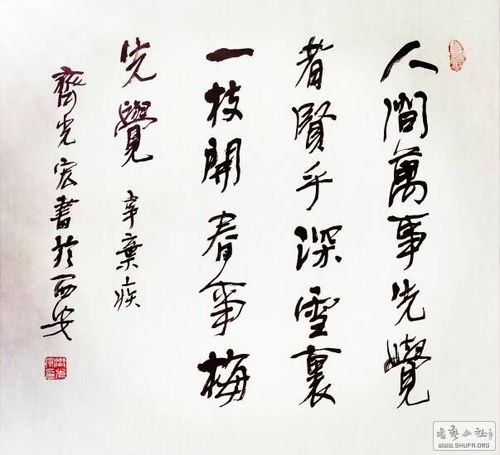 人間萬事先覺
者賢乎深雪裏
一枝開春事梅
先覺 辛棄疾
齊光宏書於西安
书艺公社
WWW.SHUFA.ORG